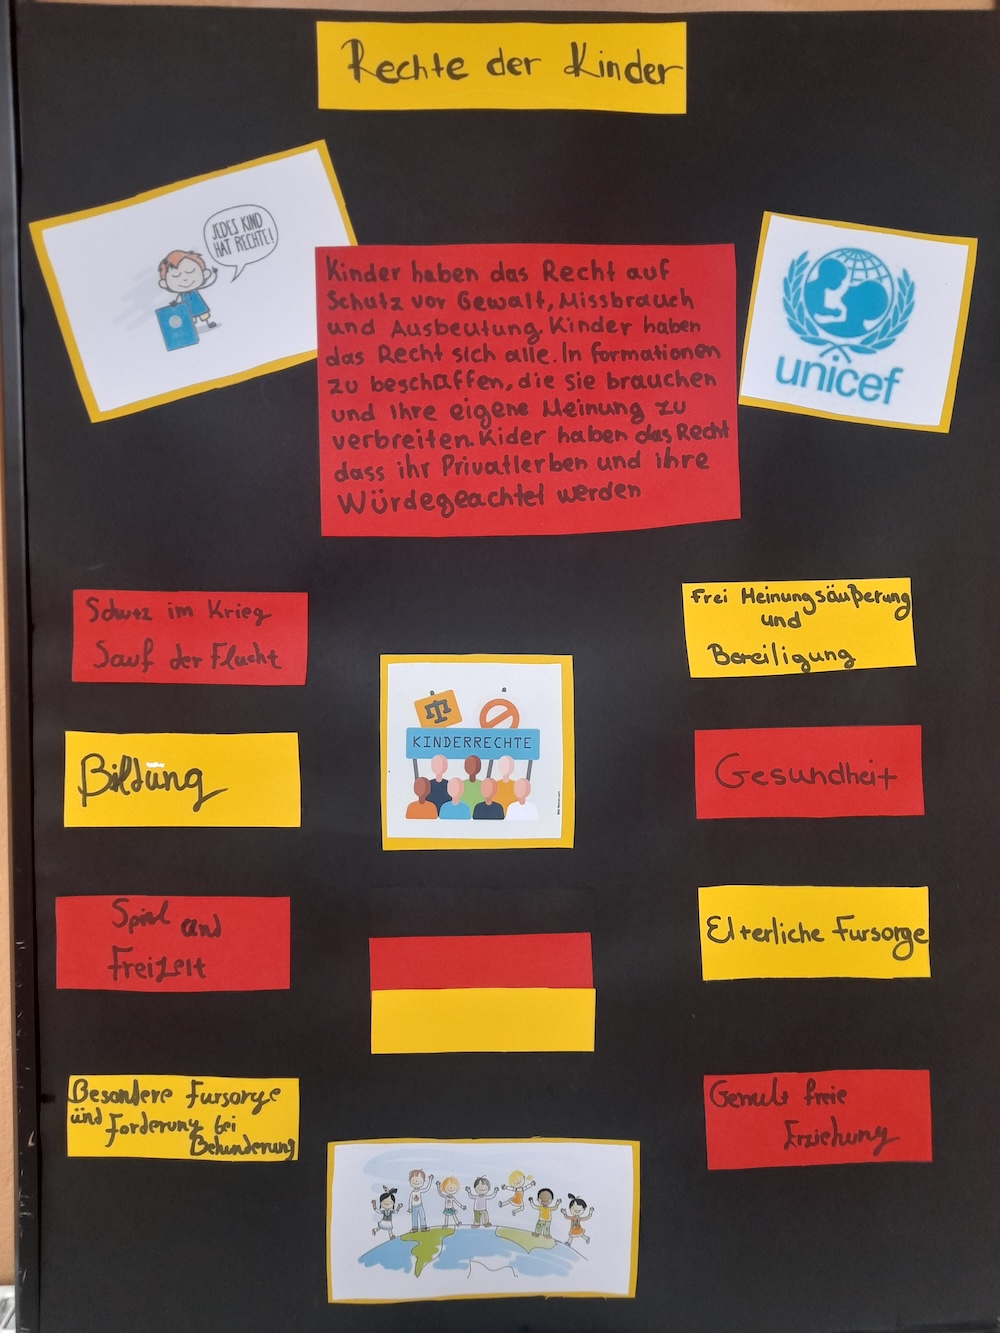 Rechte der Kinder
JEDES KIND
HAT RECHTE!
Kinder haben das Recht auf
Schutz vor Gewalt, Missbrauch
und Ausbeutung. Kinder haben
das Recht sich alle. In formationen
zu beschaffen, die sie brauchen
und Ihre eigene Meinung zu
verbreiten. Kider haben das Recht
dass ihr Privatlerben und ihre
Würdegeachtet werden
unicef
Schutz im Krieg
Sauf der Flucht
Frei Meinungsäußerung
und
Bereiligung
Bildung
KINDERRECHTE
Gesundheit
Spiel and
Freizeit
Elterliche Fursorge
Besondere Fursorge
ünd Forderung bei
Behinderung
Gewalt freie
Erziehung